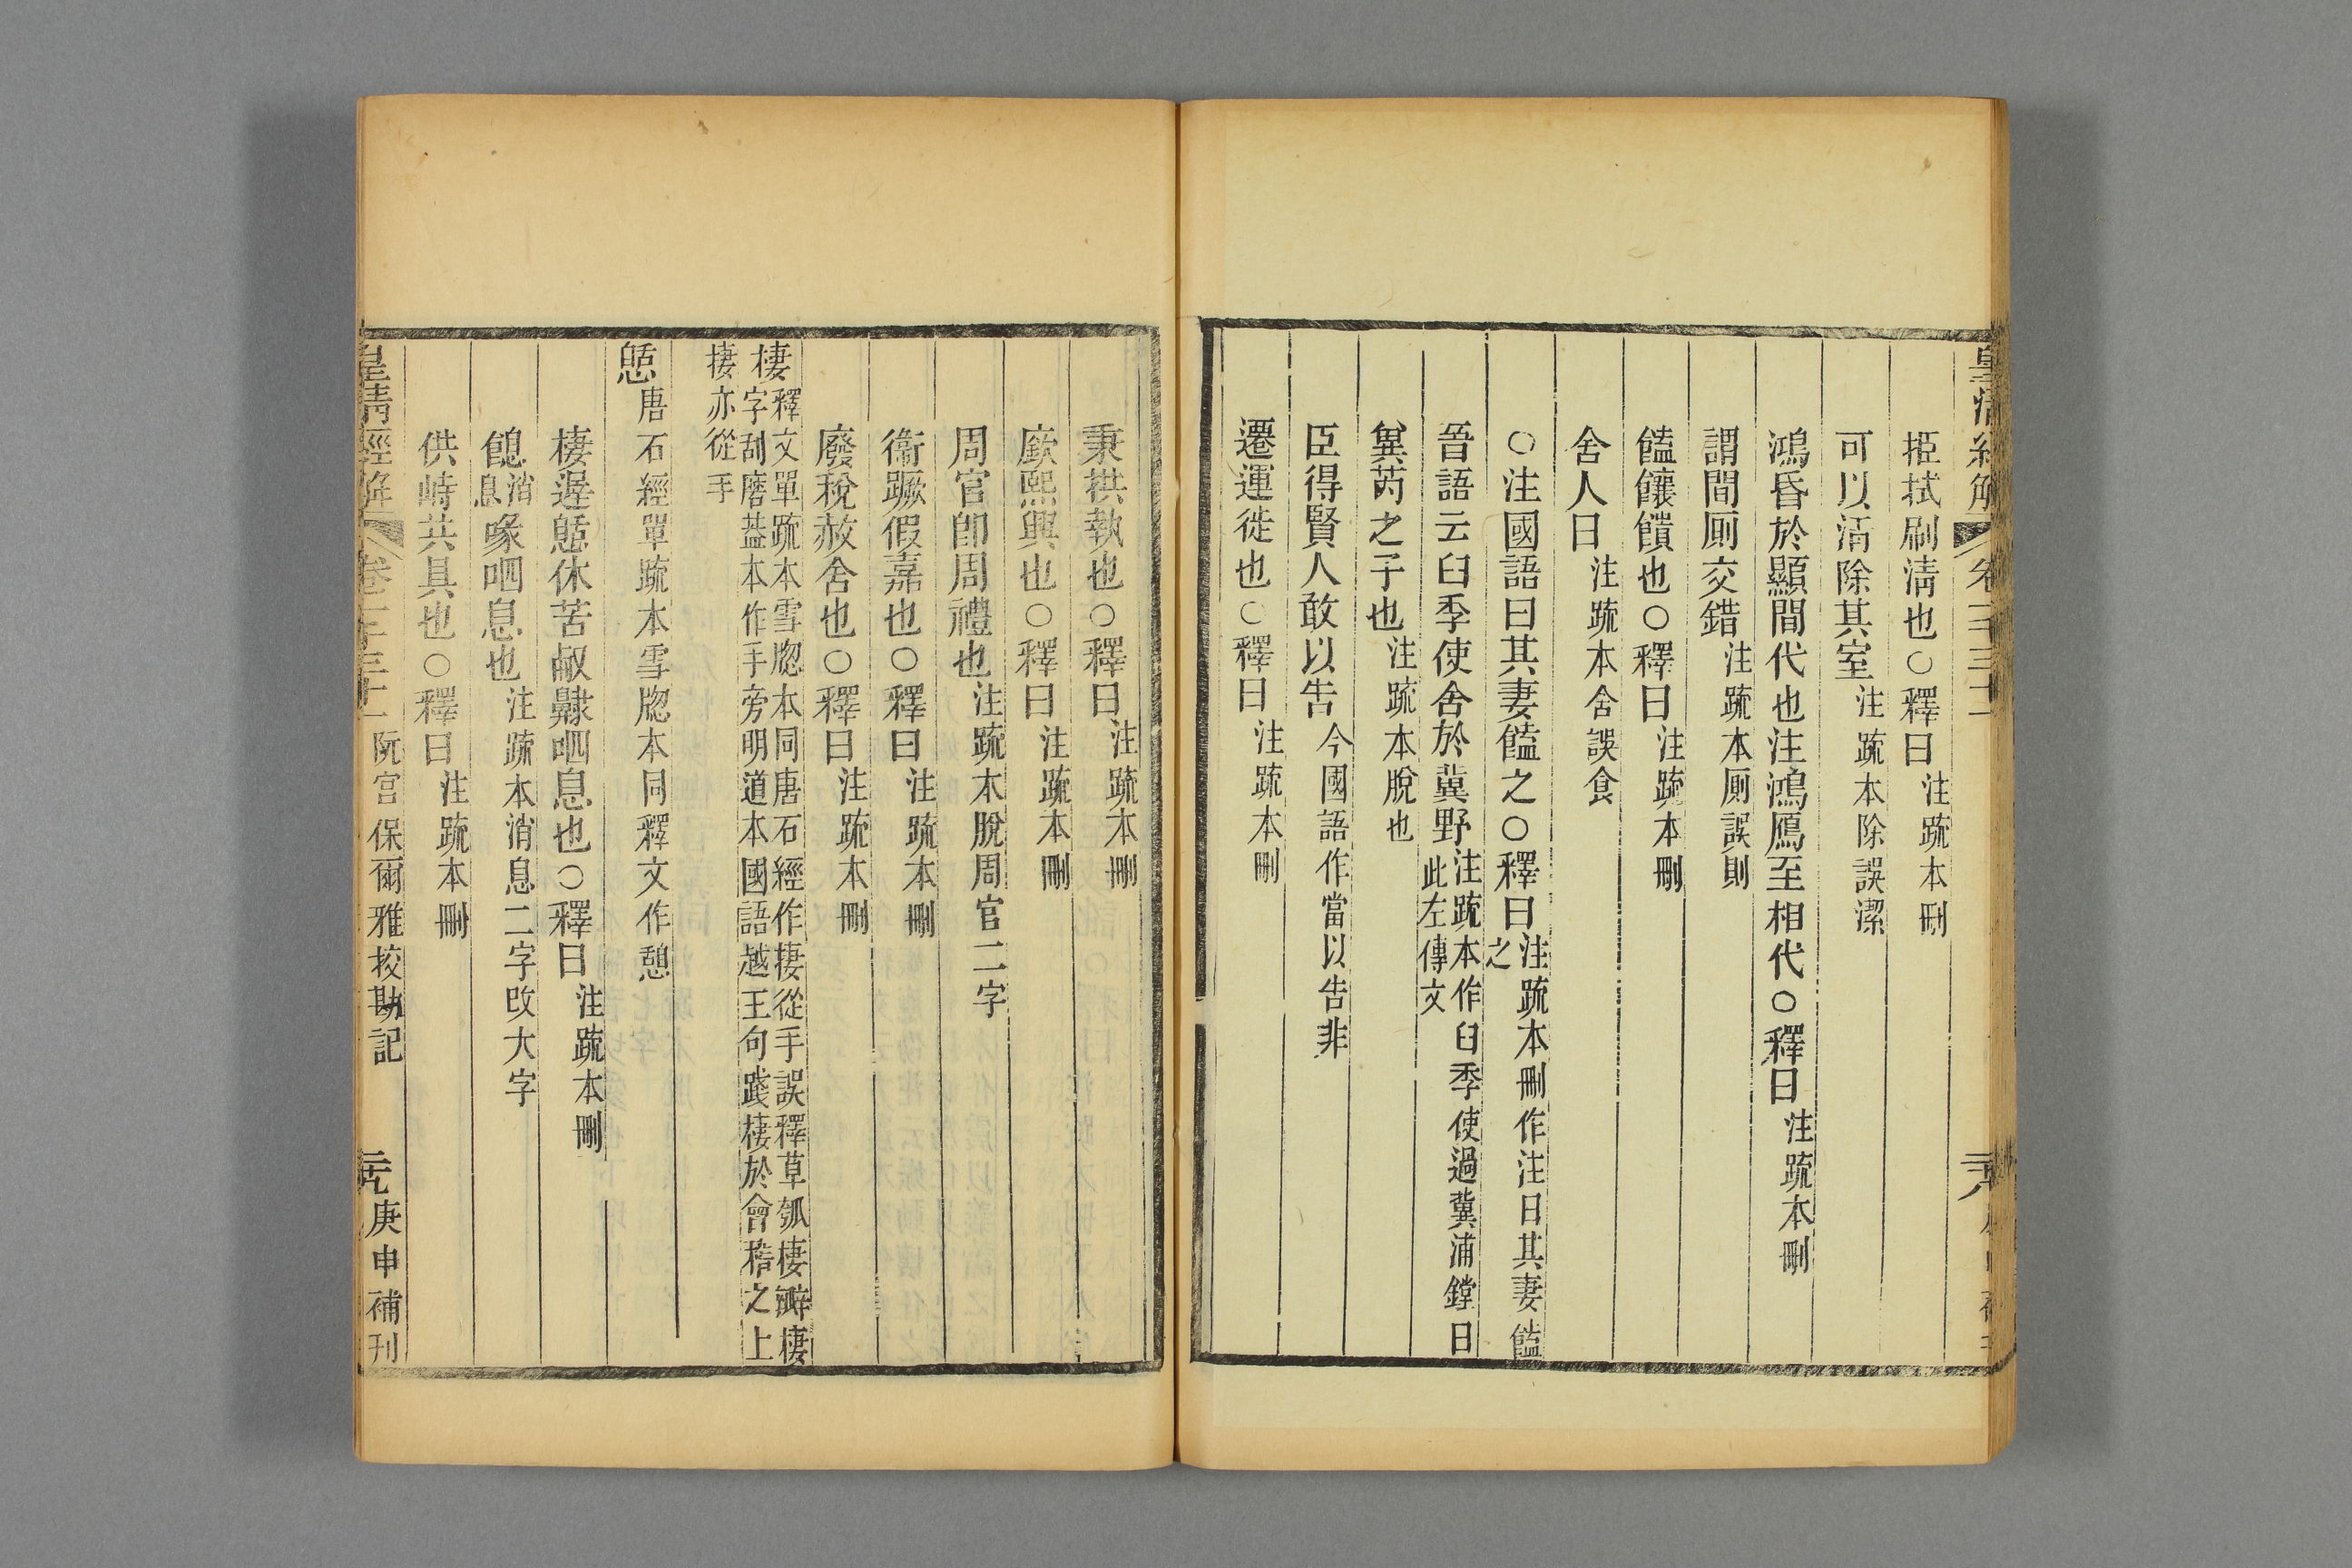 皇清經解 卷一千三十一
挋拭刷清也○釋曰注疏本刪
可以清除其室注疏本除誤潔
鴻昏於顯間代也注鴻鴈至相代○釋曰注疏本刪
謂間厠交錯注疏本厠誤則
饁饟饋也○釋曰注疏本刪
舍人曰注疏本舍誤食
○注國語曰其妻饁之○釋曰注疏本刪作注曰其妻饁之
晉語云臼季使舍於冀野注疏本作臼季使過冀浦鏜曰此左傳文
兾芮之子也注疏本脫也
臣得賢人敢以告今國語作當以告非
遷運徙也○釋曰注疏本刪
秉拱執也○釋曰注疏本刪
廞熙興也○釋曰注疏本刪
周官卽周禮也注疏本脫周官二字
衞蹶假嘉也○釋曰注疏本刪
廢稅赦舍也○釋曰注疏本刪
棲釋文單疏本雪牎本同唐石經作捿從手誤釋草瓠棲瓣棲
字刮磨葢本作手旁明道本國語越王句踐棲於會稽之上
捿亦從手
憩唐石經單疏本雪牎本同釋文作憇
棲遲憩休苦㕞䶑呬息也○釋曰注疏本刪
䭒消息喙呬息也注疏本消息二字改大字
供峙共具也○釋曰注疏本刪
皇清經解 卷一千三十一 阮宮保爾雅挍勘記 庚申補刊